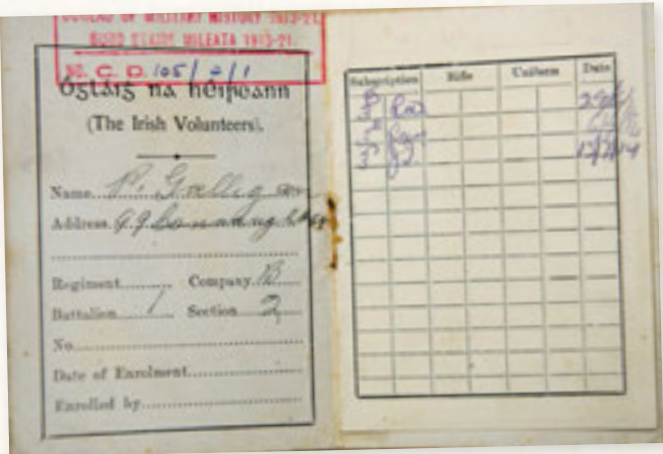 BUREAU OF MILITARY HISTORY 1913-21
BURO STAIRE MILEATA 1913-21
NO. C. D. 105/2/1
Óglaiġ na hÉireann
(The Irish Volunteers).
Name P. Galligan
Address
Regiment Company B
Battalion 1 Section 2
No.
Date of Enrolment
Enrolled by
Subscription Rifle Uniform Date